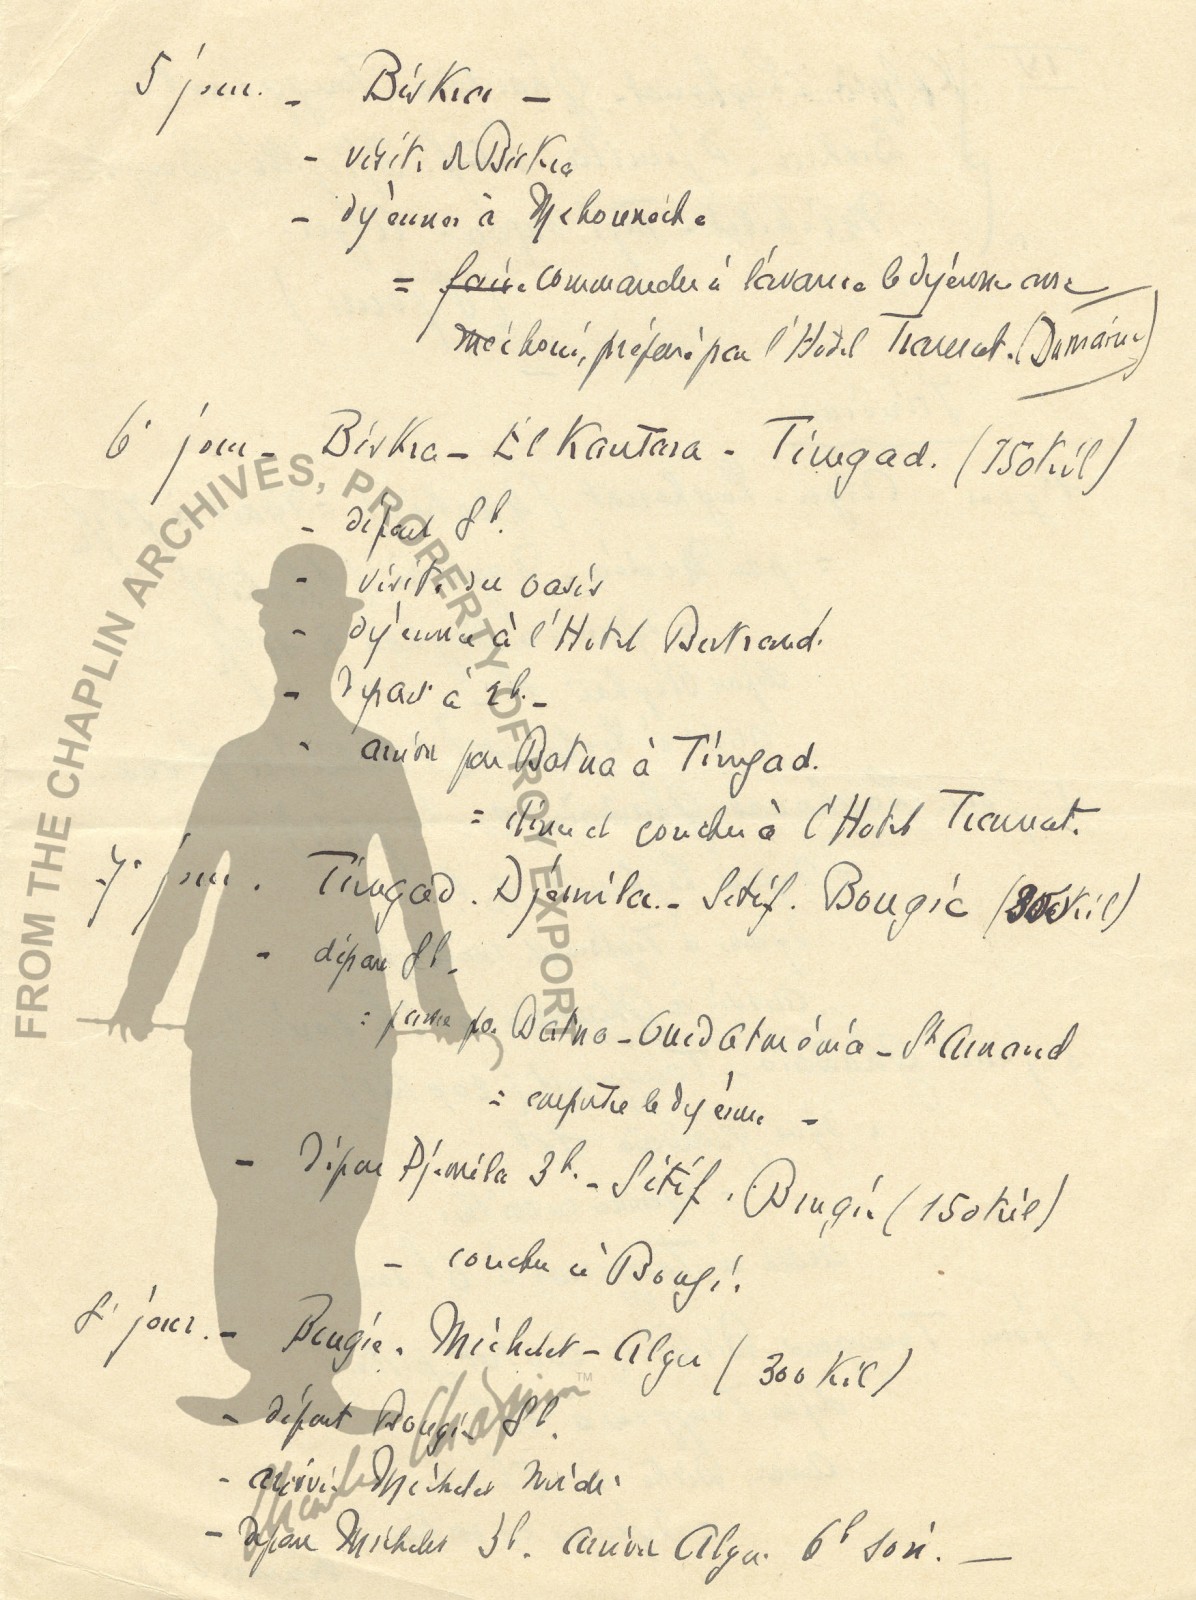 5 jour. - Biskra -
- visite de Biskra
- déjeuner à Mchounèche
= faire commander à l'avance le déjeuner avec
méchoui, préparé par l'Hotel Transat. (Dumaine)
6e jour - Biskra - El Kantara - Timgad. (150 kil)
- départ 8h.
- visite du oasis
- déjeuner à l'Hotel Bertrand.
- départ à 2h. -
- arrivée par Batna à Timgad.
= diner et coucher à l'Hotel Transat.
7e jour. Timgad. Djemila. - Sétif. Bougie ( kil)
- départ 8h -
= par Batna - Oued Atménia - St Arnaud
= emporter le déjeuner -
- Départ Djemila 3h. - Sétif. Bougie (150 kil)
- coucher à Bougie
8e jour. - Bougie. Michelet - Alger (300 kil)
- départ Bougie 8h.
- arrivée Michelet midi
- départ Michelet 3h. arrivée Alger 6h soir. -
FROM THE CHAPLIN ARCHIVES, PROPERTY OF ROY EXPORT
Charlie Chaplin™